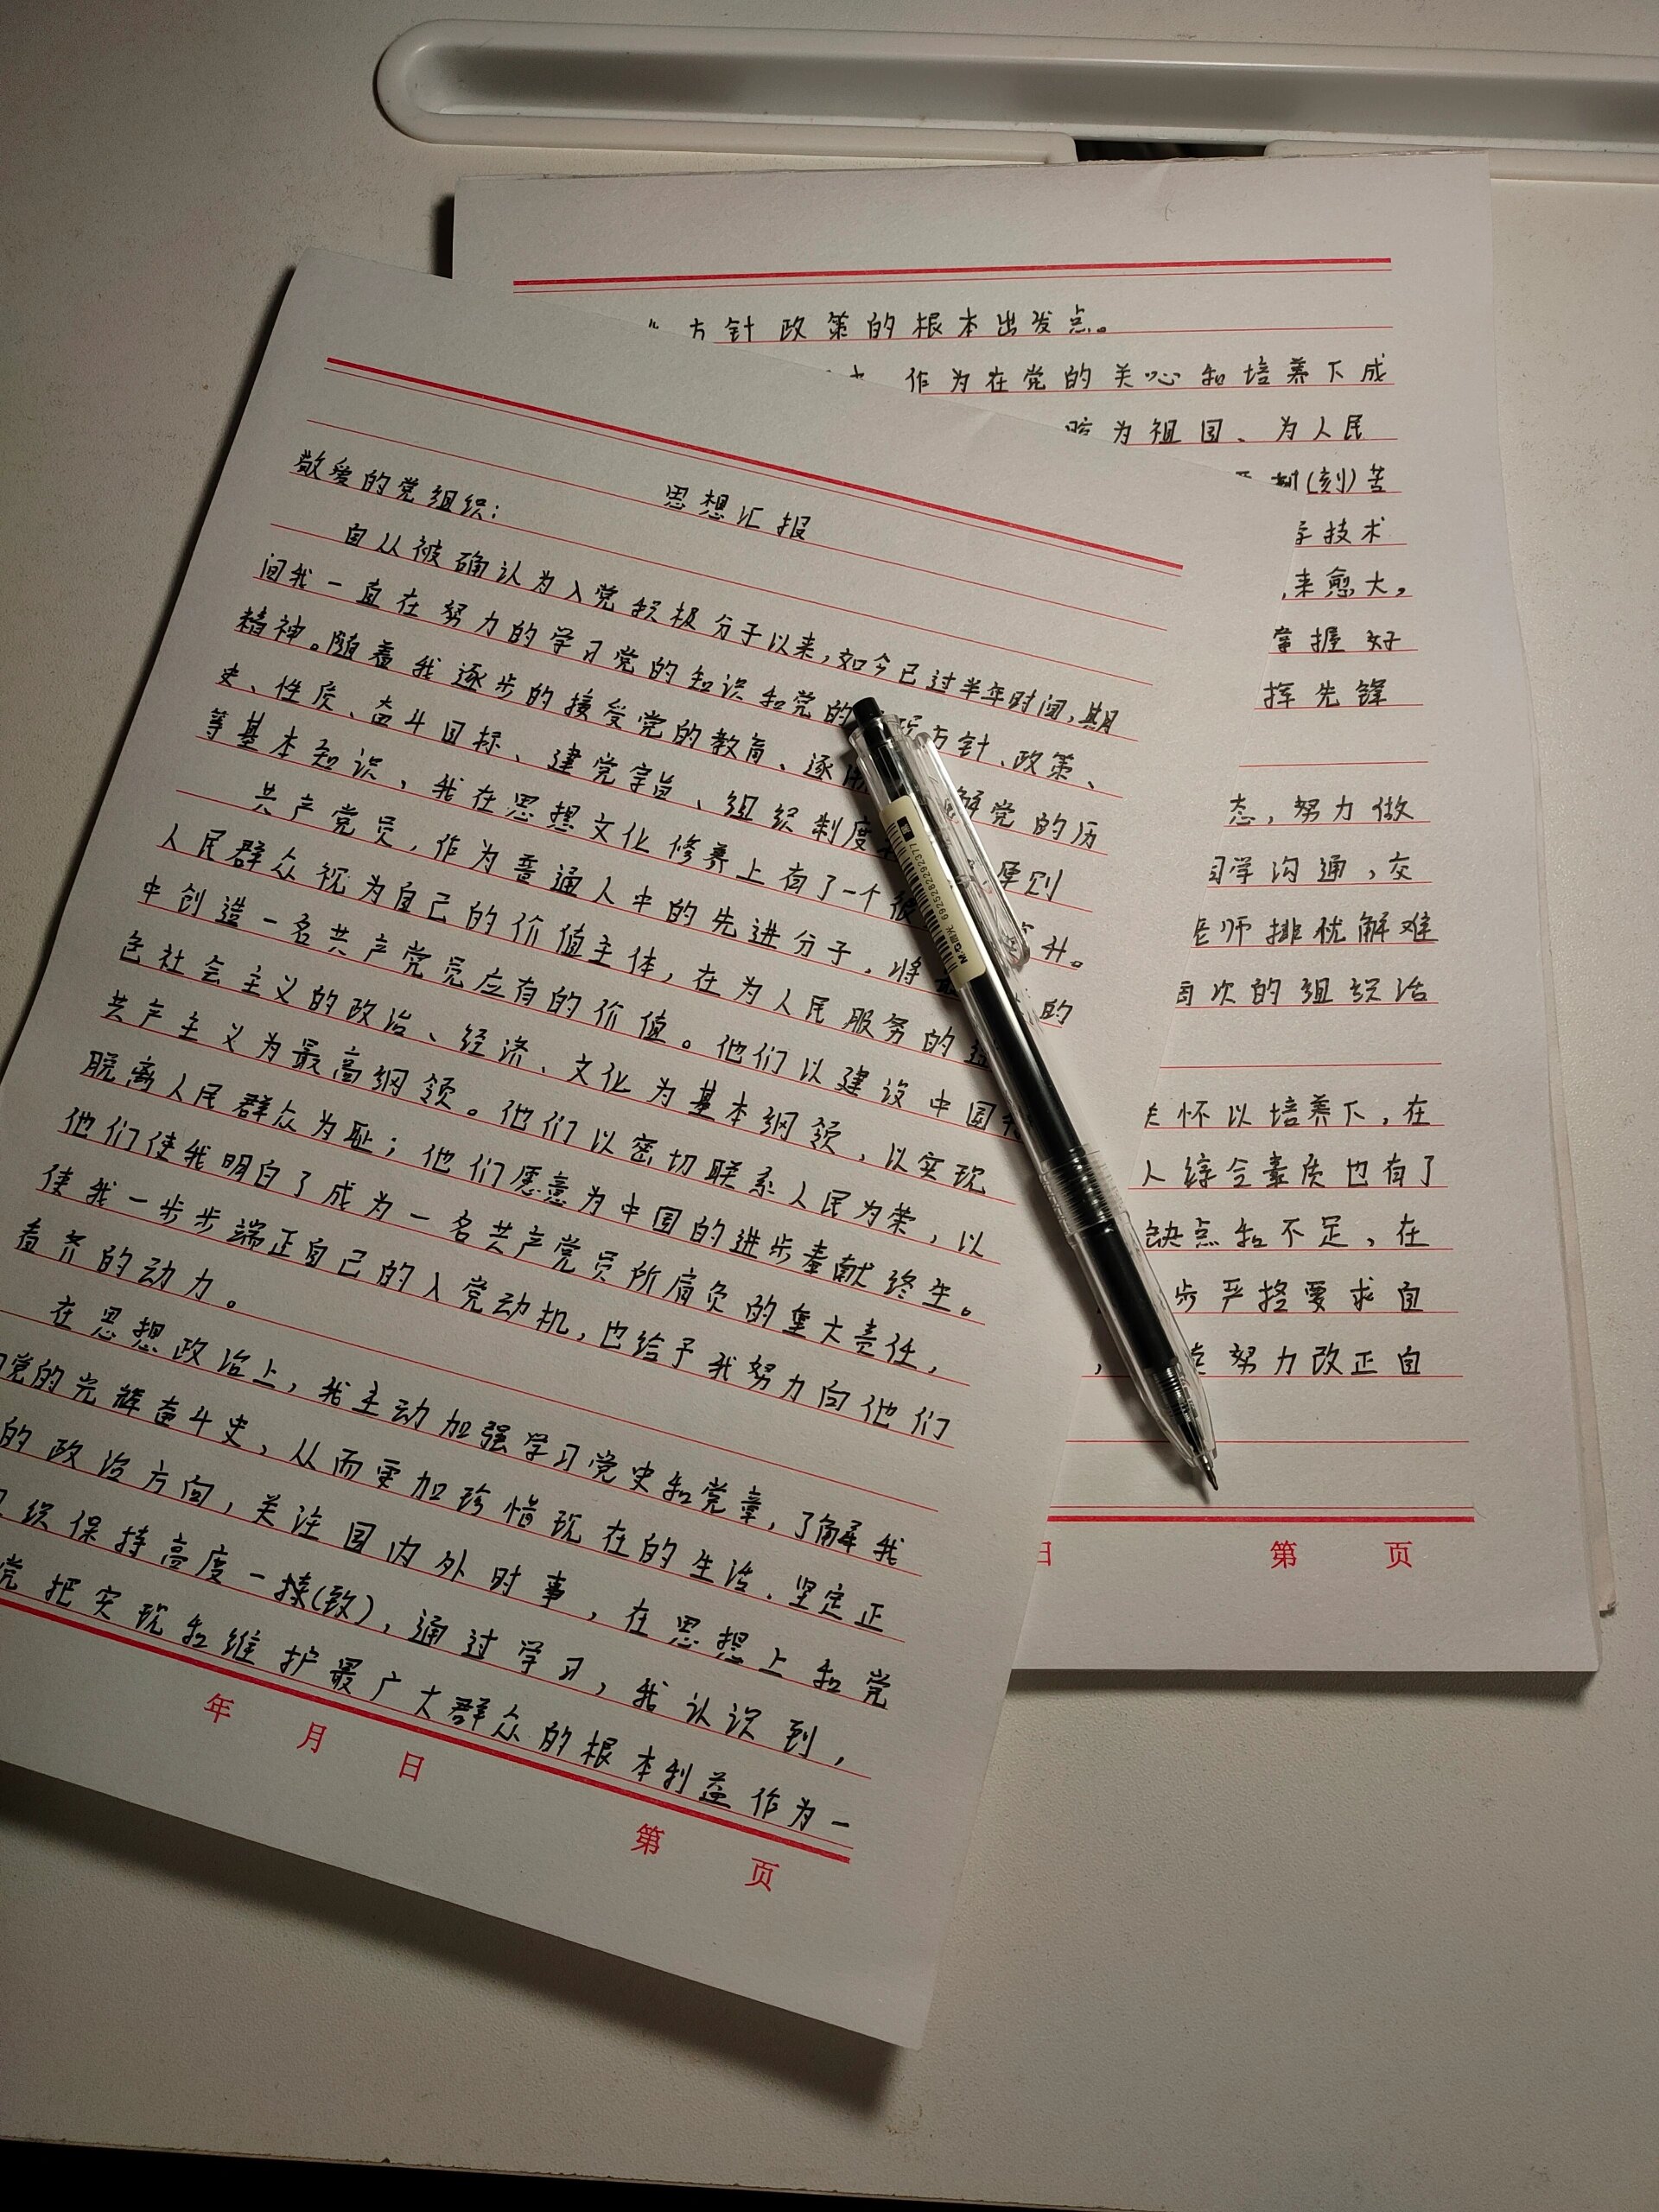 思想汇报
敬爱的党组织：
自从被确认为入党积极分子以来，如今已过半年时间，期
间我一直在努力的学习党的知识和党的 方针、政策、
精神。随着我逐步的接受党的教育、逐 解党的历
史、性质、奋斗目标、建党宗旨、组织制度 原则
等基本知识，我在思想文化修养上有了一个很 升。
共产党员，作为普通人中的先进分子，将 的
人民群众视为自己的价值主体，在为人民服务的
中创造一名共产党员应有的价值。他们以建设中国
色社会主义的政治、经济、文化为基本纲领，以实现
共产主义为最高纲领。他们以密切联系人民为荣，以
脱离人民群众为耻；他们愿意为中国的进步奉献终生。
他们使我明白了成为一名共产党员所肩负的重大责任，
使我一步步端正自己的入党动机，也给予我努力向他们
看齐的动力。
在思想政治上，我主动加强学习党史和党章，了解我
党的光辉奋斗史，从而更加珍惜现在的生活，坚定正
的政治方向，关注国内外时事，在思想上和党
保持高度一(致)，通过学习，我认识到，
党把实现和维护最广大群众的根本利益作为一
年 月 日
第 页
方针政策的根本出发点。
作为在党的关心和培养下成
为祖国、为人民
(刻)苦
技术
来愈大，
掌握好
挥先锋
态，努力做
同学沟通，交
老师排忧解难
次的组织活
怀以培养下，在
人综合素质也有了
缺点和不足，在
步严格要求自
努力改正自
日
第 页
M&G晨光
6925282292377